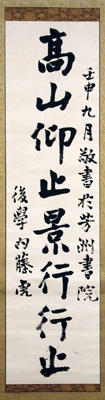 壬申九月敬書於芳洲書院
高山仰止景行行止
後學内藤虎